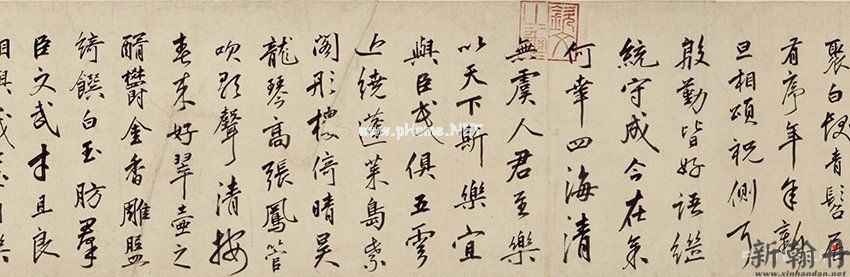 聚白叟青髫
有序年年新
旦相頌祝側下
殷勤皆好語繼
統守成今在余
何幸四海清
無虞人君至樂
以天下斯樂宜
與臣民俱五雲
上繞蓬萊島紫
閣彤樓倚晴昊
龍琴高張鳳管
吹歌聲清按
春來好翠壺之
醑鬱金香雕盤
綺饌白玉肪羣
臣文武才且良
欽文之璽
www.pHome.NET
新翰丹
www.xinhandan.net